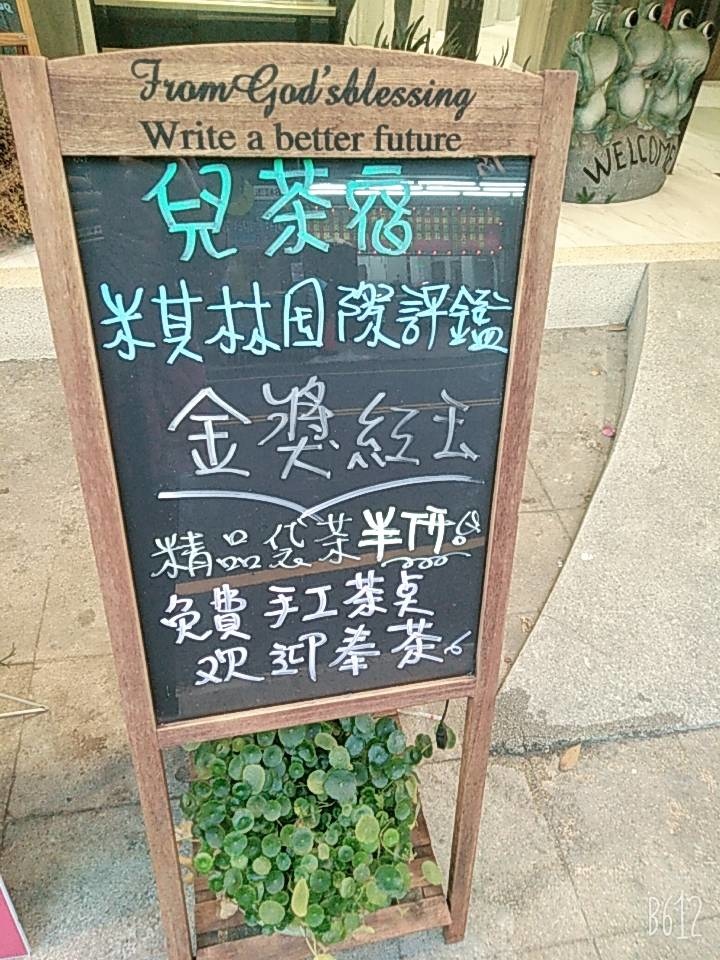 From God'sblessing
Write a better future
兒茶宿
WELCOME
米其林国際評鑑
金獎紅玉
精品袋茶半価
免費手工茶桌
欢迎奉茶
B612